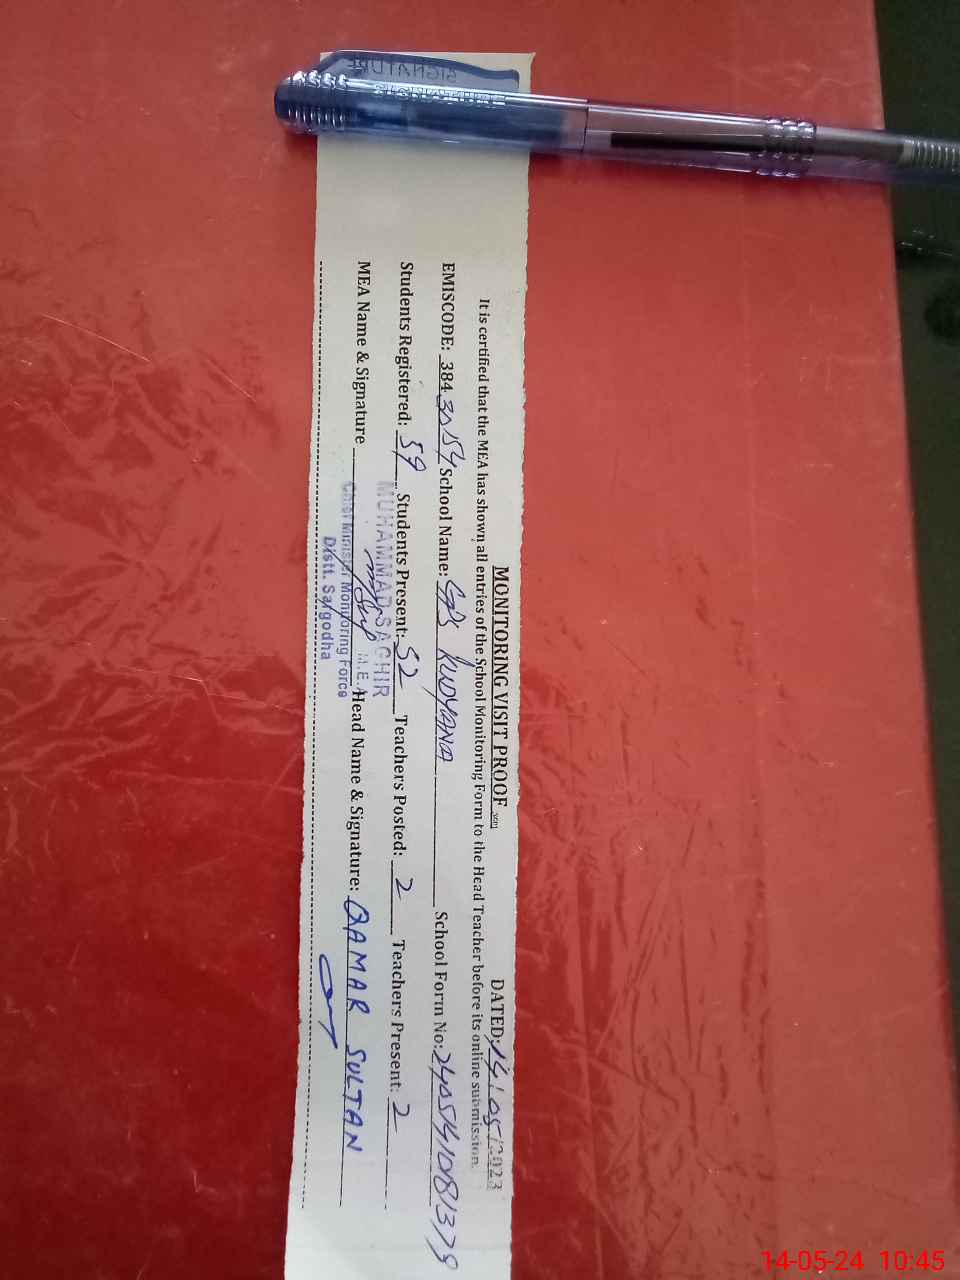 MONITORING VISIT PROOF DATED: 14/05/2023
It is certified that the MEA has shown all entries of the School Monitoring Form to the Head Teacher before its online submission.
EMISCODE: 384 School Name: GPS KUDYANA School Form No: 24051410813
Students Registered: 59 Students Present: 52 Teachers Posted: 2 Teachers Present: 2
MUHAMMAD SAGHIR
MEA Name & Signature Head Name & Signature: QAMAR SULTAN
M.E.A
Chief Minister Monitoring Force
Distt. Sargodha
14-05-24 10:45